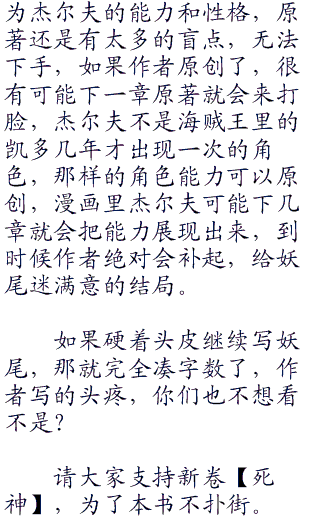 为杰尔夫的能力和性格，原
著还是有太多的盲点，无法
下手，如果作者原创了，很
有可能下一章原著就会来打
脸，杰尔夫不是海贼王里的
凯多几年才出现一次的角
色，那样的角色能力可以原
创，漫画里杰尔夫可能下几
章就会把能力展现出来，到
时候作者绝对会补起，给妖
尾迷满意的结局。
如果硬着头皮继续写妖
尾，那就完全凑字数了，作
者写的头疼，你们也不想看
不是？
请大家支持新卷【死
神】，为了本书不扑街。